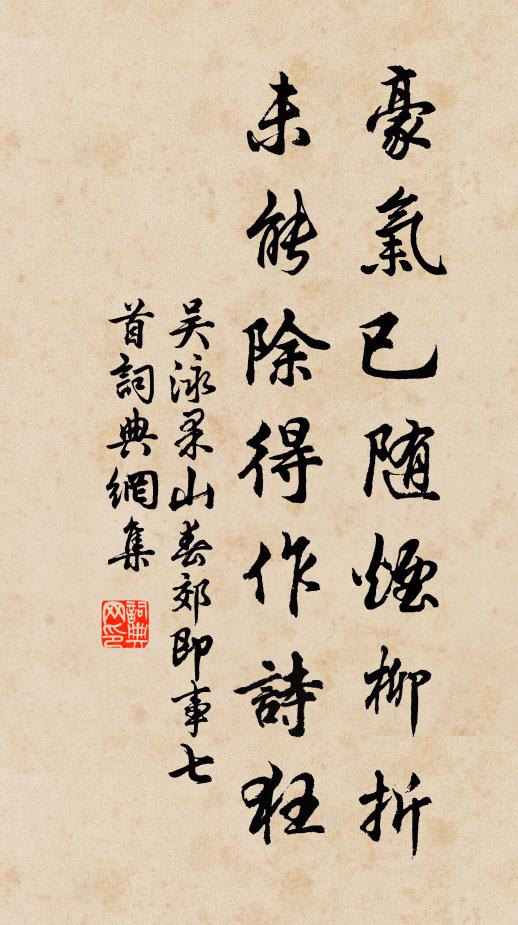 豪氣已随煙柳折
未能除得作詩狂
吴泳果山春郊即事七
首詞典網集
詞典
网印